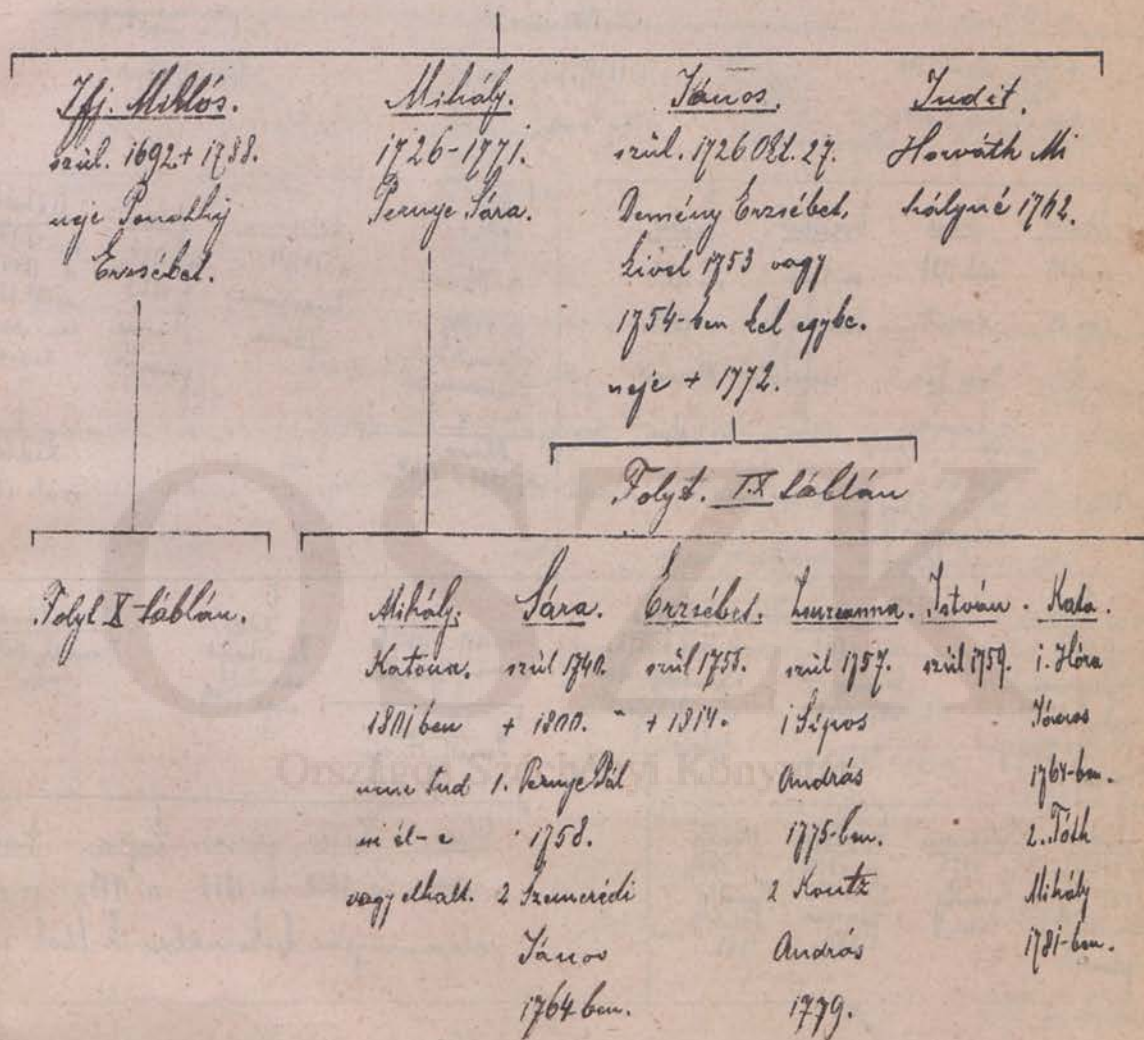 Ifj. Miklós.
szül. 1692 + 1788.
neje
Erzsébet.
Mihály.
1726-1771.
Pernye Sára.
János.
szül. 1726 Okt. 27.
Demény Erzsébet,
kivel 1753 vagy
1754-ben kel egybe.
neje + 1772.
Judit.
Horváth Mi
hályné 1762.
Folyt. IX táblán
Folyt X táblán.
Mihály.
Katona.
1801 ben
nem tud
ni él-e
vagy elhalt.
Sára.
szül 1740.
+ 1800.
1. Pernye Pál
1758.
2 Szemerédi
János
1764 ben.
Erzsébet.
szül
+ 1814.
Zsuzsanna.
szül 1757.
1 Sipos
András
1775-ben.
2 Kontz
András
1779.
István.
szül 1759.
Kata.
1. Hóra
János
1764-ben.
2. Tóth
Mihály
1781-ben.
OSZK
Országos Széchényi Könyvtár